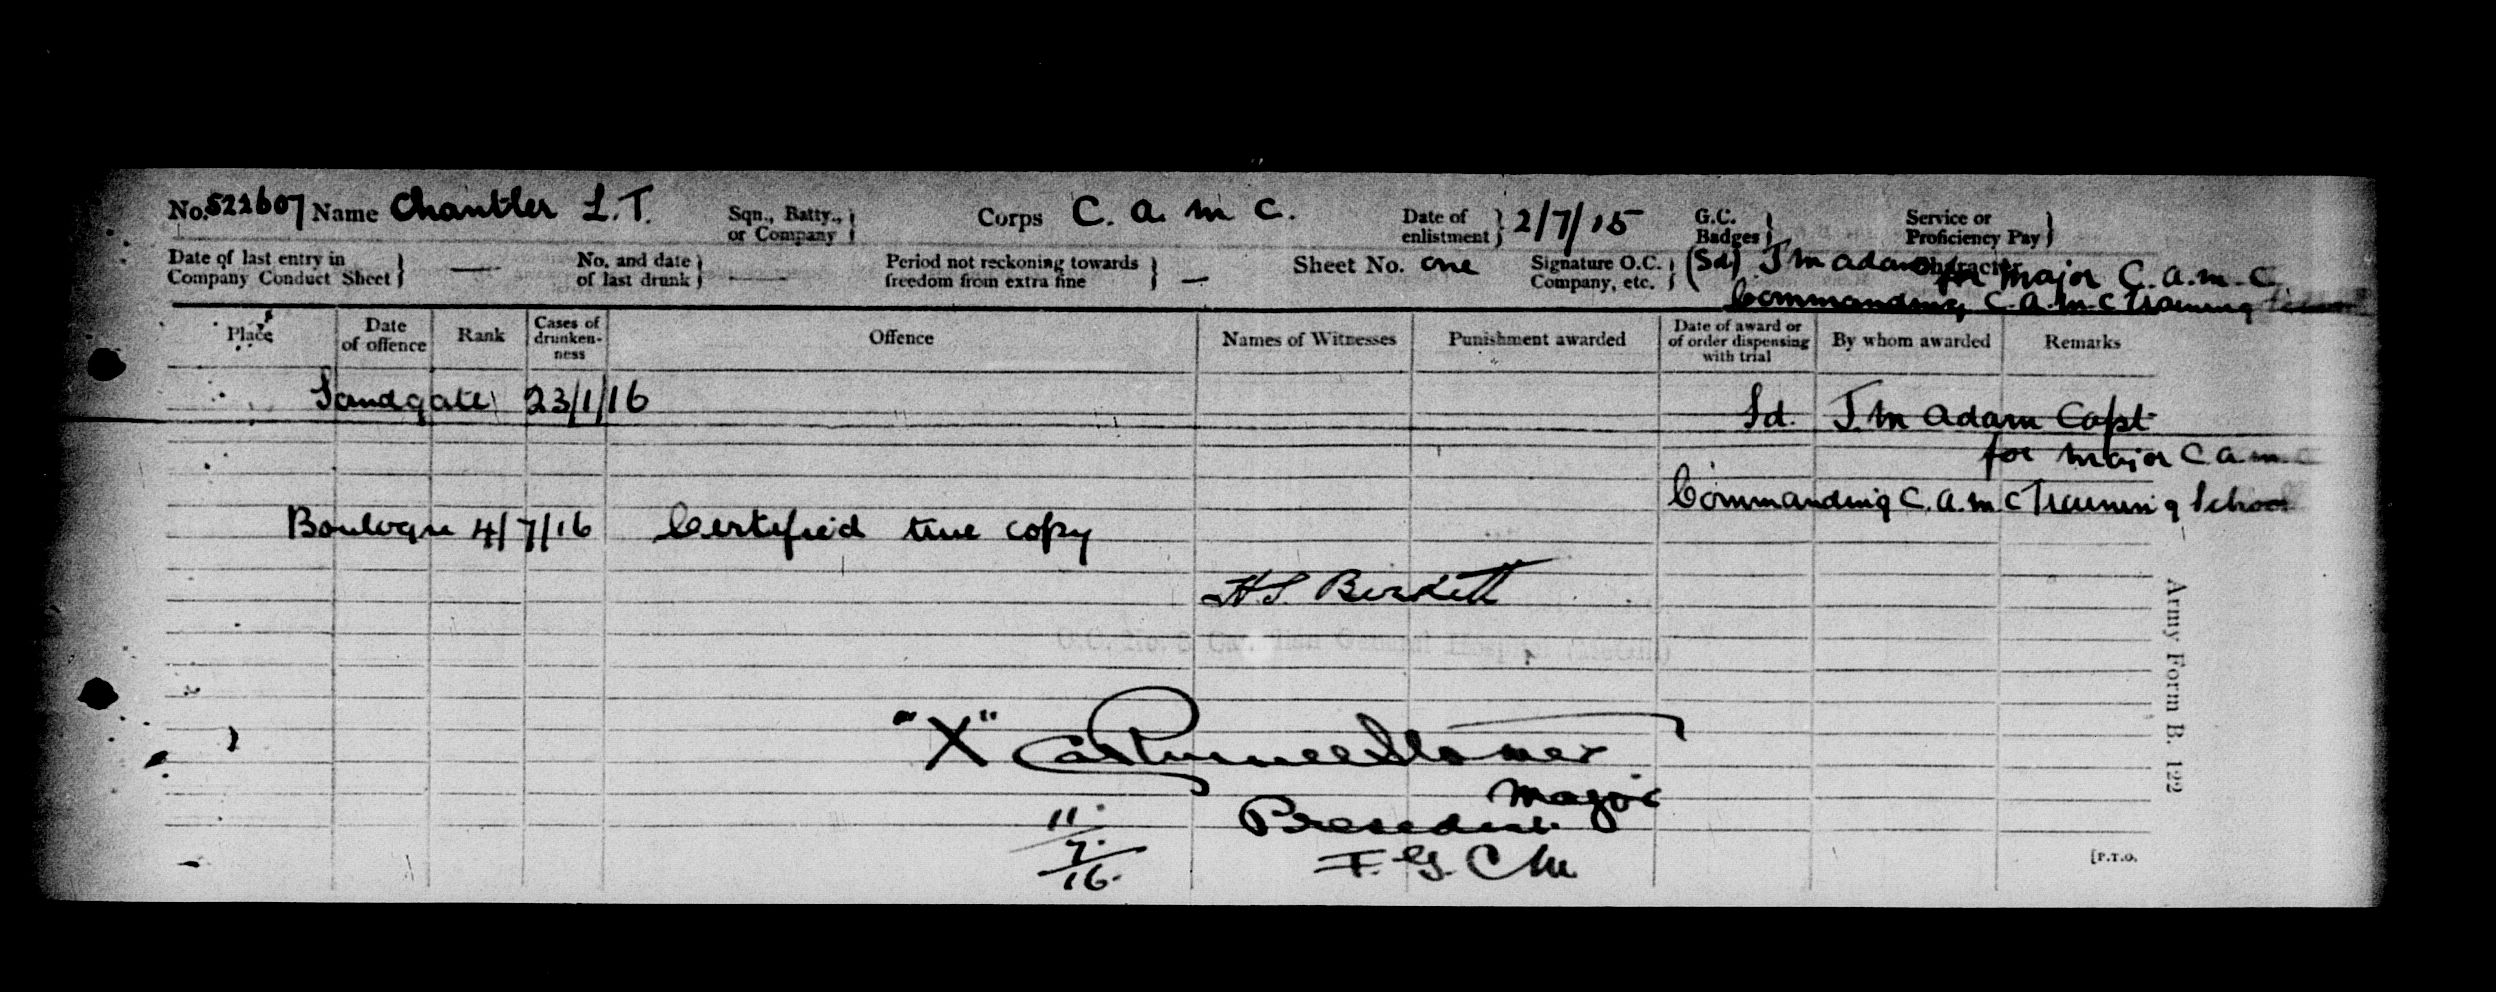 No. 522607 Name Chantler L.T. Sqn., Batty., or Company Corps C. a. m c. Date of enlistment 2/7/15 G.C. Badges Service or Proficiency Pay
Date of last entry in Company Conduct Sheet — No. and date of last drunk — Period not reckoning towards freedom from extra fine — Sheet No. one Signature O.C. Company, etc. (Sd) J m adam Character for major C. a. m. C
Commanding C. a. m. c Training School
Place Date of offence Rank Cases of drunken-ness Offence Names of Witnesses Punishment awarded Date of award or of order dispensing with trial By whom awarded Remarks
Sandgate 23/1/16 Sd. J. m adam Capt
for major C a m c
Commanding C. a. m. c Training School
Boulogne 4/7/16 Certified true copy
H.S. Birkett
O.C. No. 3 General Hospital (McGill)
"X"
Major
11. President
7. F. G. C M
16.
[P.T.O.
Army Form B. 122